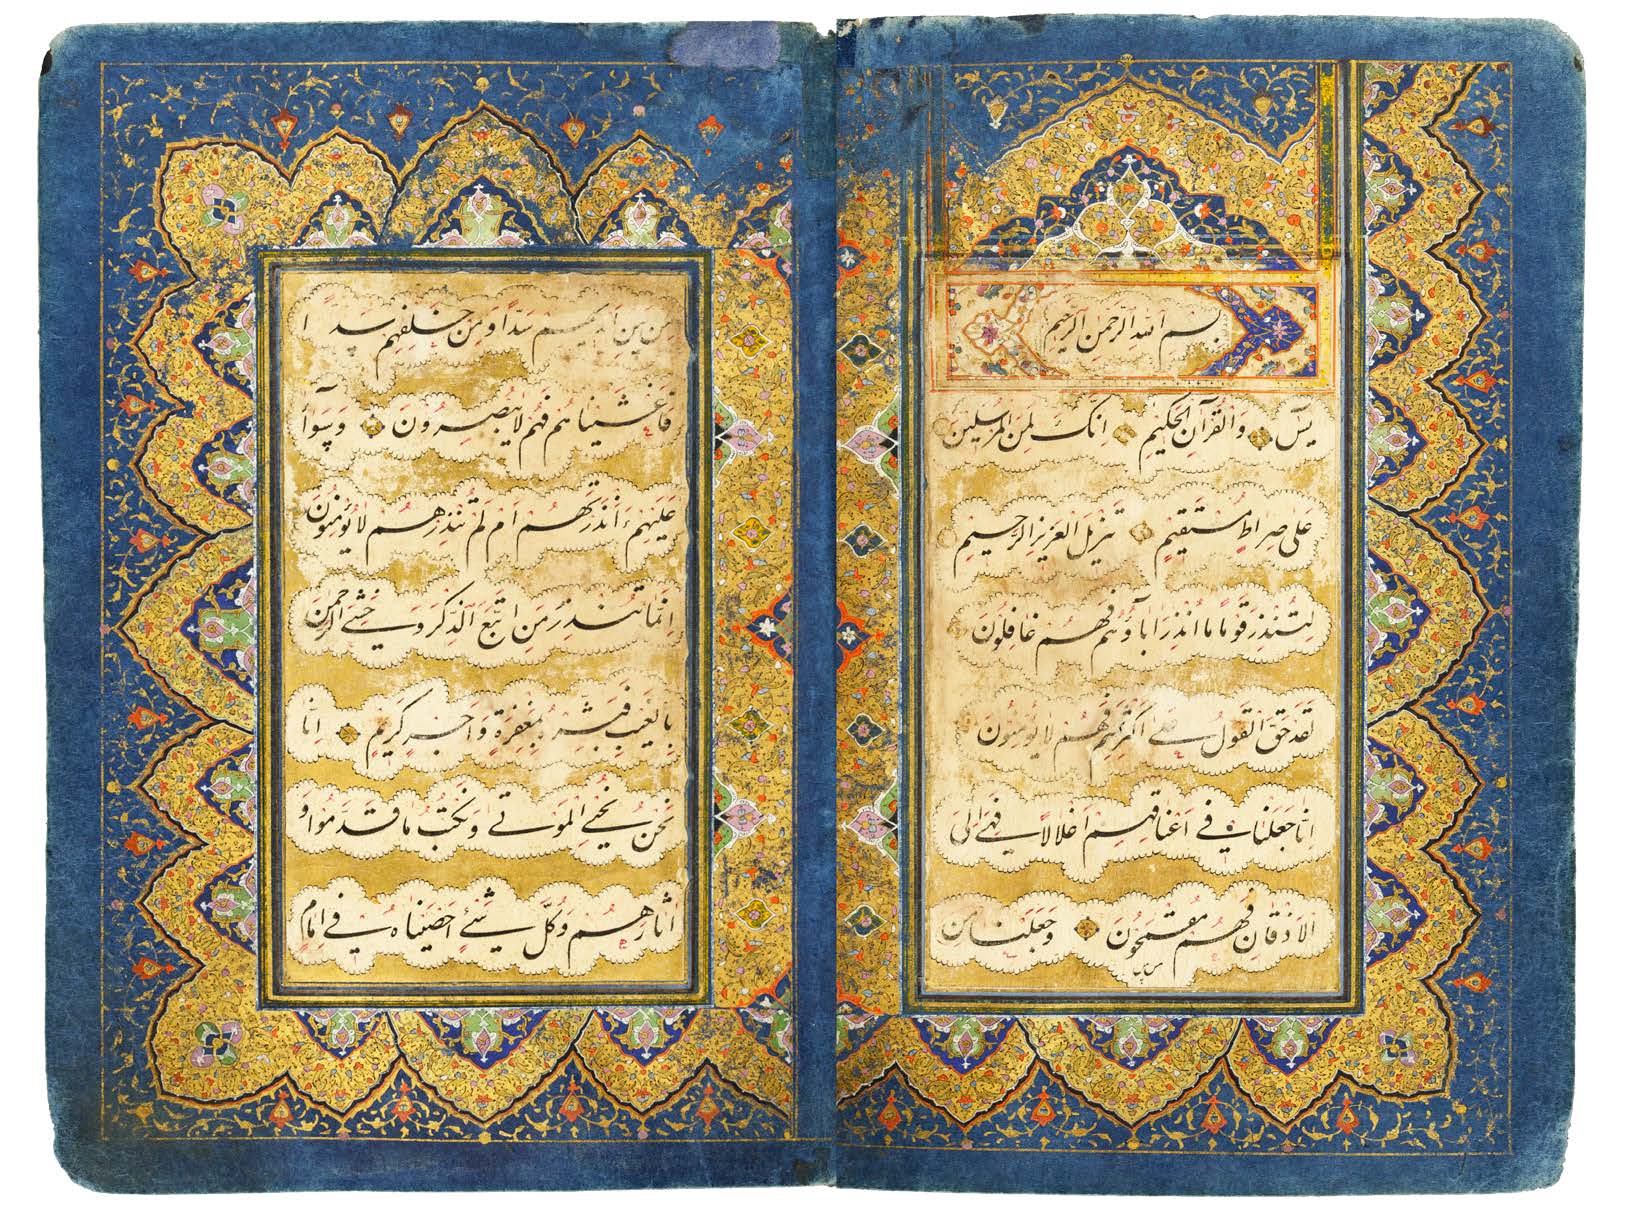 بسم الله الرحمن الرحيم
يسۤ وَالقُرآنِ الحكيمِ اِنّكَ لمِنَ المُرسَلينَ
عَلى صِراطٍ مُستَقيمٍ تنزيلَ العَزيزِ الرّحيمِ
لِتُنذِرَ قومًا ما اُنذِرَ اٰبآؤُهُم فَهُم غافِلُونَ
لقَد حَقَّ القَولُ على اَكثَرِهِم فَهُم لا يُؤمِنُونَ
اِنّا جَعَلنا في اَعناقِهِم اَغلالاً فَهِيَ اِلَى
الاَذقانِ فَهُم مُقمَحُونَ وَجَعَلنا مِن
مِن بَينِ اَيديهِم سَدًّا وَمِن خَلفِهِم سَدًّا
فَاَغشَيناهُم فَهُم لا يُبصِرُونَ وَسَوَآءٌ
عَلَيهِم ءَاَنذَرتَهُم اَم لَم تُنذِرهُم لا يُؤمِنُونَ
اِنَّما تُنذِرُ مَنِ اتَّبَعَ الذِّكرَ وَخَشِيَ الرَّحمنَ
بِالغَيبِ فَبَشِّرهُ بِمَغفِرَةٍ وَاَجرٍ كَريمٍ اِنّا
نَحنُ نُحيِي المَوتى وَنَكتُبُ ما قَدَّمُوا وَ
اٰثارَهُم وَكُلَّ شَيءٍ اَحصَيناهُ في اِمامٍ